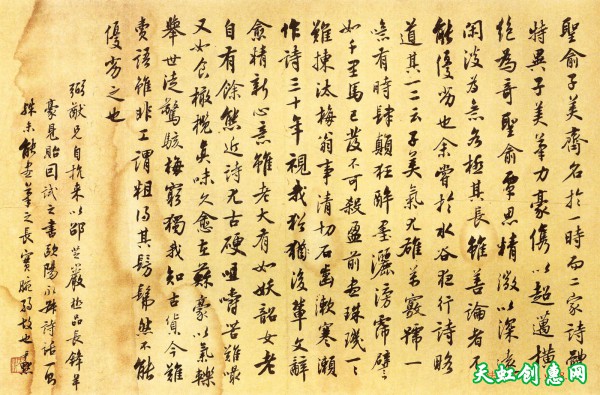 聖俞子美齊名於一時而二家詩體
特異子美筆力豪儁以超邁橫
絕為奇聖俞覃思精微以深遠
閑淡為意各極其長雖善論者不
能優劣也余嘗於水谷夜行詩略
道其一二云子美氣尤雄萬竅號一
噫有時肆顛狂醉墨灑滂霈譬
如千里馬已發不可殺盈前盡珠璣一々
難揀汰梅翁事清切石齒漱寒瀨
作詩三十年視我猶猶後輩文辭
愈精新心意雖老大有如妖韶女老
自有餘態近詩尤古硬咀嚼苦難嘬
又如食橄欖真味久愈在蘇豪以氣轢
舉世徒驚駭梅窮獨我知古貨今難
賣語雖非工謂粗得其髣髴然不能
優劣之也
兄自杭來以邵芝巖極品長鋒羊
豪見貽回試之書歐陽永叔詩話一
殊未能盡筆之長實腕弱故也 尹默
天虹创惠网